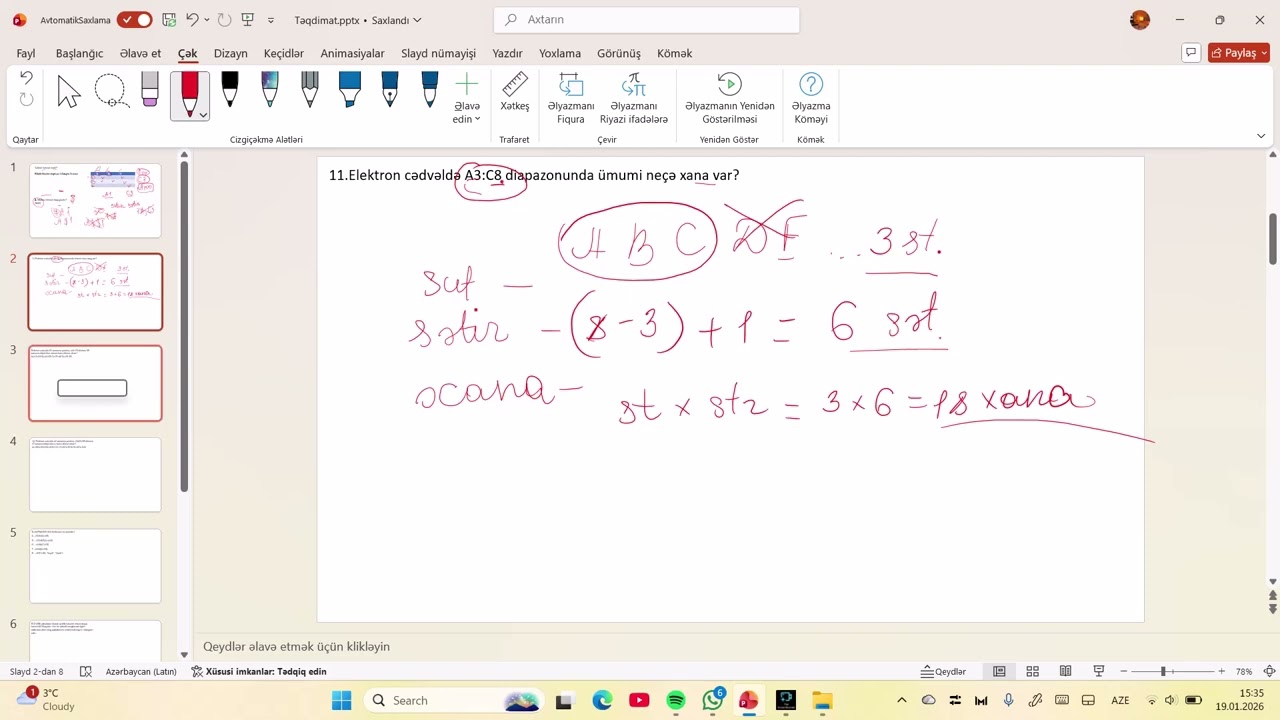 AvtomatikSaxlama
Təqdimat.pptx • Saxlandı
Axtarın
Fayl Başlanğıc Əlavə et Çək Dizayn Keçidlər Animasiyalar Slayd nümayişi Yazdır Yoxlama Görünüş Kömək
Paylaş
Qaytar
Əlavə edin
Cizgiçəkmə Alətləri
Xətkeş
Trafaret
Əlyazmanı Fiqura
Əlyazmanı Riyazi ifadələrə
Çevir
Əlyazmanın Yenidən Göstərilməsi
Yenidən Göstər
Əlyazma Köməyi
Kömək
1
2
3
4
5
6
11.Elektron cədvəldə A3:C8 diapazonunda ümumi neçə xana var?
A B C D F ... 3 st.
sut –
sətir – (8 - 3) + 1 = 6 sət.
xana – st x stz = 3 x 6 = 18 xana
Qeydlər əlavə etmək üçün klikləyin
Slayd 2-dən 8
Azərbaycan (Latın)
Xüsusi imkanlar: Tədqiq edin
Qeydlər
78%
1
3°C
Cloudy
Search
6
AZE
15:35
19.01.2026